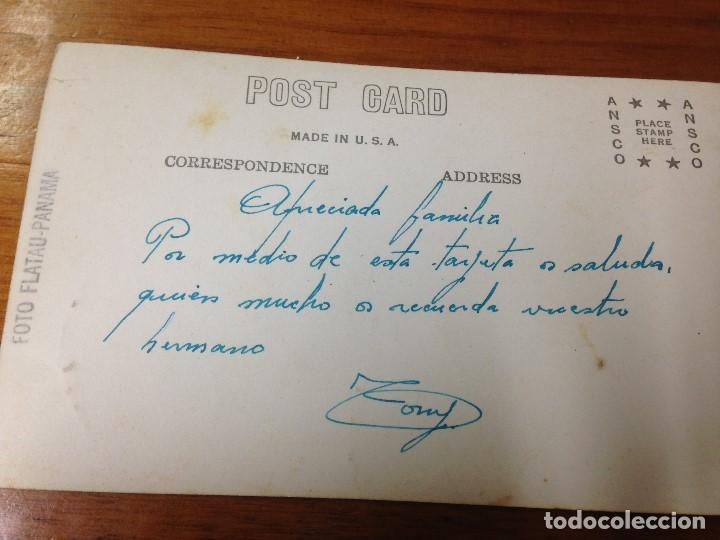 POST CARD
MADE IN U.S.A.
CORRESPONDENCE ADDRESS
ANSCO ANSCO
PLACE
STAMP
HERE
FOTO FLATAU-PANAMA
Apreciada familia
Por medio de esta tarjeta os saluda,
quien mucho os recuerda vuestro
hermano
Tony
todocoleccion.net